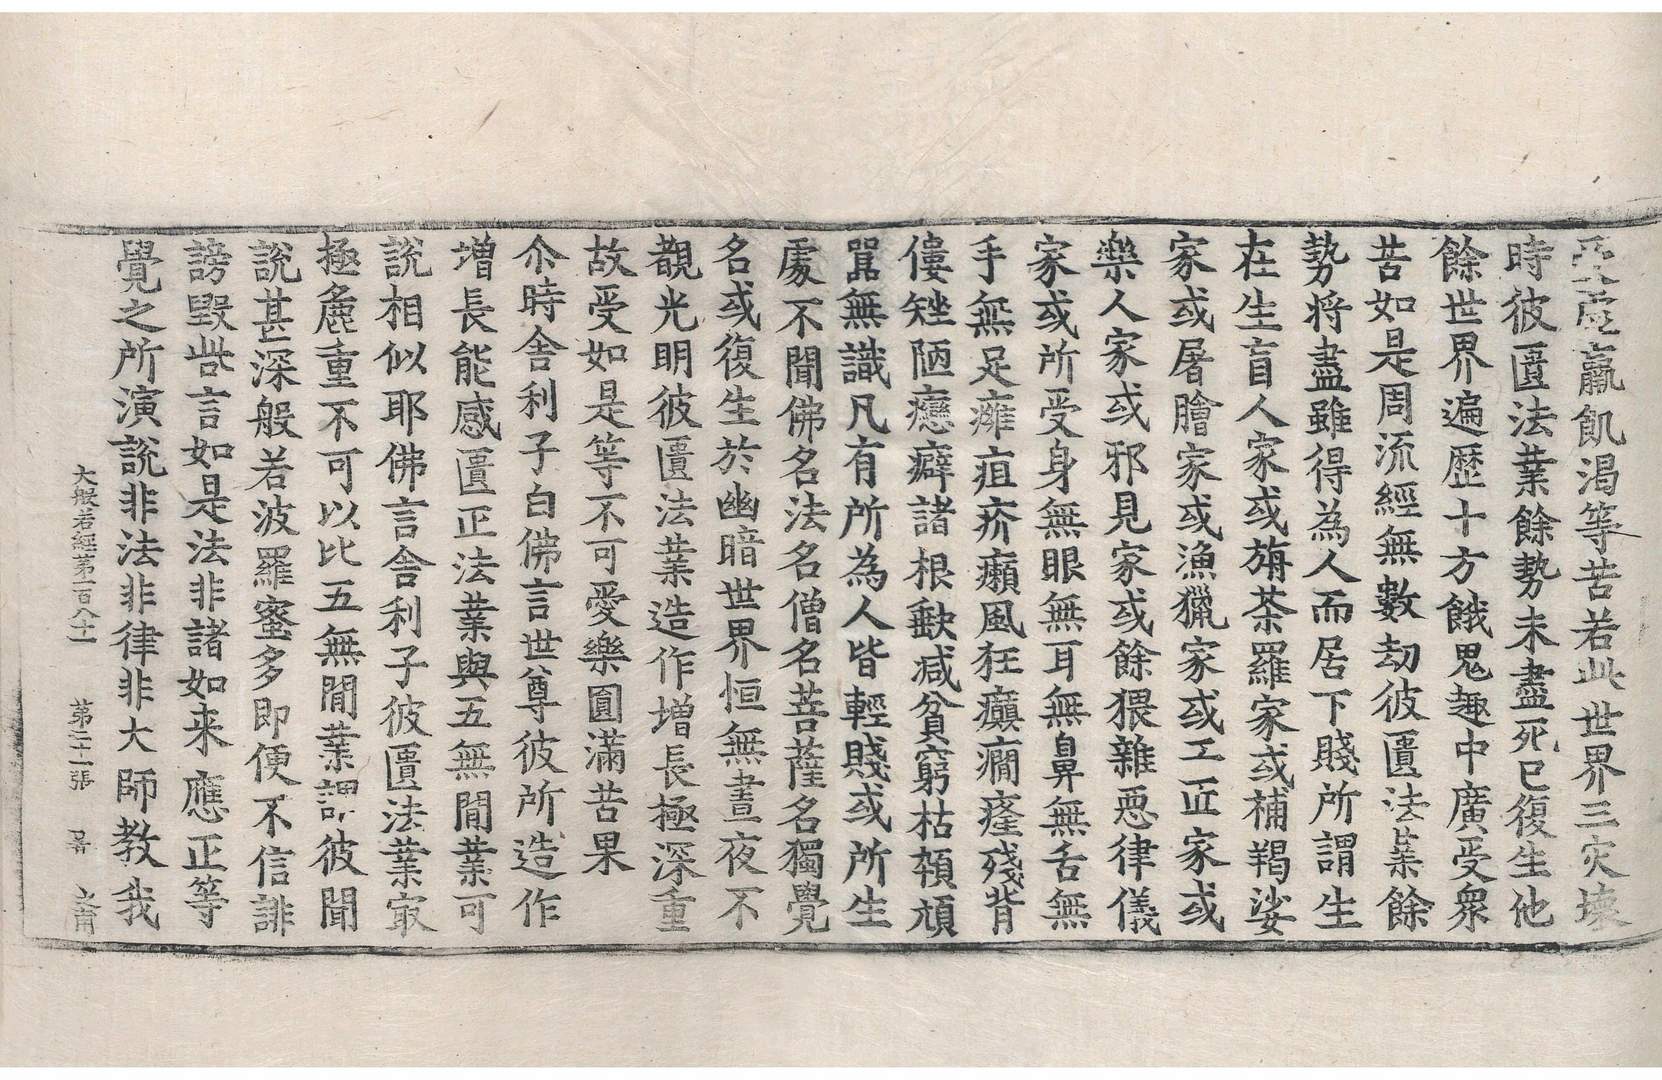 受虛羸飢渴等苦若此世界三灾壊
時彼匱法業餘勢未盡死已復生他
餘世界遍歷十方餓鬼趣中廣受衆
苦如是周流經無數劫彼匱法業餘
勢將盡雖得為人而居下賤所謂生
在生盲人家或旃茶羅家或補羯娑
家或屠膾家或漁獵家或工匠家或
樂人家或邪見家或餘猥雜惡律儀
家或所受身無眼無耳無鼻無舌無
手無足癰疽疥癩風狂癲癇癃殘背
僂矬陋攣躄諸根缺減貧窮枯頓頑
嚚無識凡有所為人皆輕賤或所生
處不聞佛名法名僧名菩薩名獨覺
名或復生於幽暗世界恒無晝夜不
覩光明彼匱法業造作増長極深重
故受如是等不可愛樂圓滿苦果
尒時舎利子白佛言世尊彼所造作
増長能感匱正法業與五無閒業可
說相似耶佛言舎利子彼匱法業㝡
極麁重不可以比五無閒業謂彼聞
說甚深般若波羅蜜多即便不信誹
謗毀此言如是法非諸如来應正等
覺之所演說非法非律非大師教我
大般若經第一百八十一 第二十一張